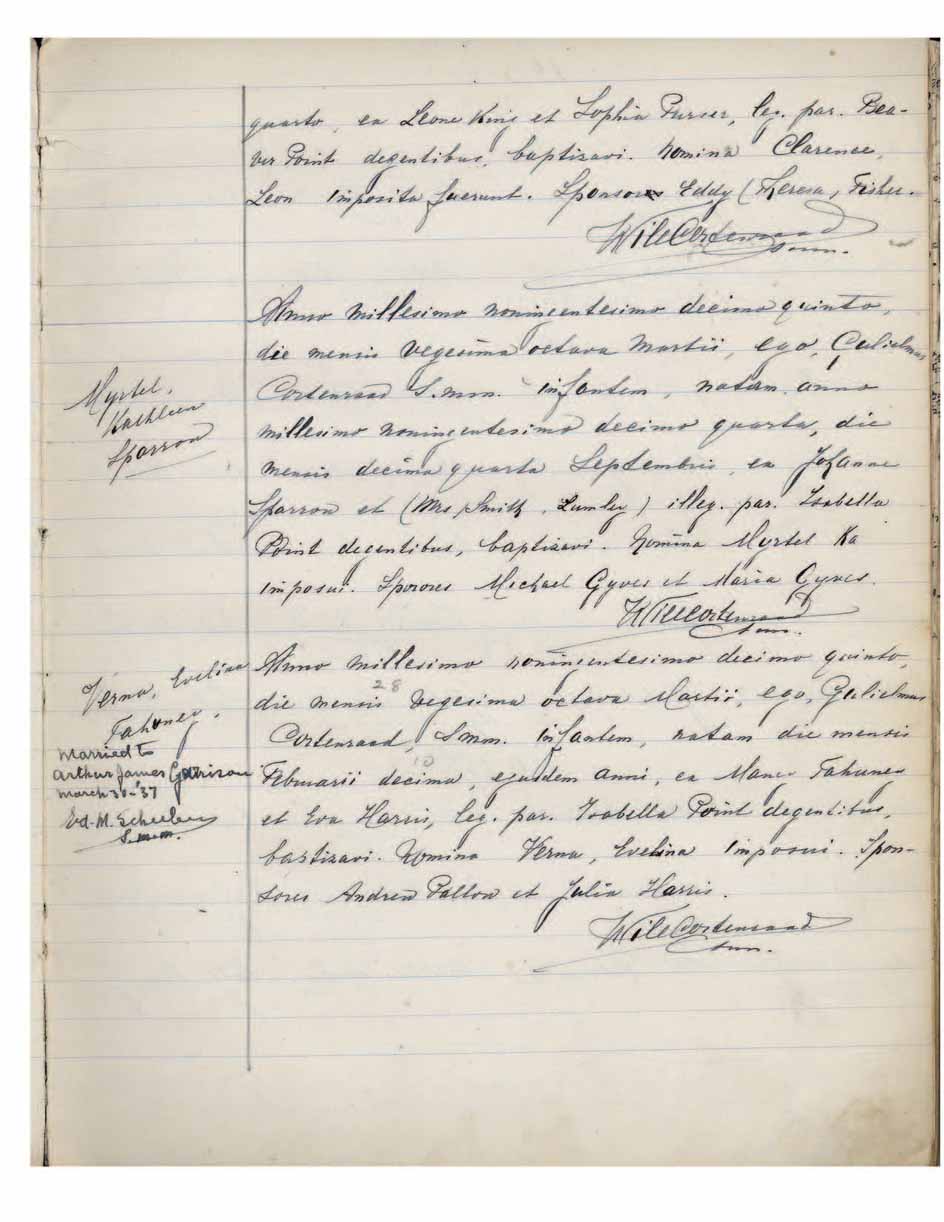 quarto, ex Leone King et Sophia Purser, leg. par. Bea-
ver Point degentibus, baptizavi. Nomina Clarence,
Leon imposita fuerunt. Sponsores Eddy (Theresa, Fisher.
Wile Cortenraad
S.mm.
Anno millesimo noningentesimo decimo quinto,
die mensis vegesima octava Martii, ego, Gulielmus
Cortenraad S.mm. infantem, natam anno
millesimo noningentesimo decimo quarto, die
mensis decima quarta Septembris, ex Johanne
Sparrow et (Mrs Smith, Lumley) illeg. par. Isabella
Point degentibus, baptizavi. Nomina Myrtel Ka
imposui. Sporores Michael Gyves et Maria Gyves.
Wile Cortenraad
S.mm.
Myrtel,
Kathleen
Sparrow
Anno millesimo noningentesimo decimo quinto,
28
die mensis vegesima octava Martii, ego, Gulielmus
Cortenraad, S.mm. infantem, natam die mensis
10
Februarii decima, ejusdem anni, ex Fahuney
et Eva Harris, leg. par. Isabella Point degentibus,
bastizavi. Nomina Verna, Evelina imposui. Spon-
sores Andrew Pallow et Julia Harris.
Wile Cortenraad
S.mm.
Verna, Evelina
Fahuney.
Married to
Arthur James Garrison
March 30-'37
Ed. M. Scheelen
S.m.m.